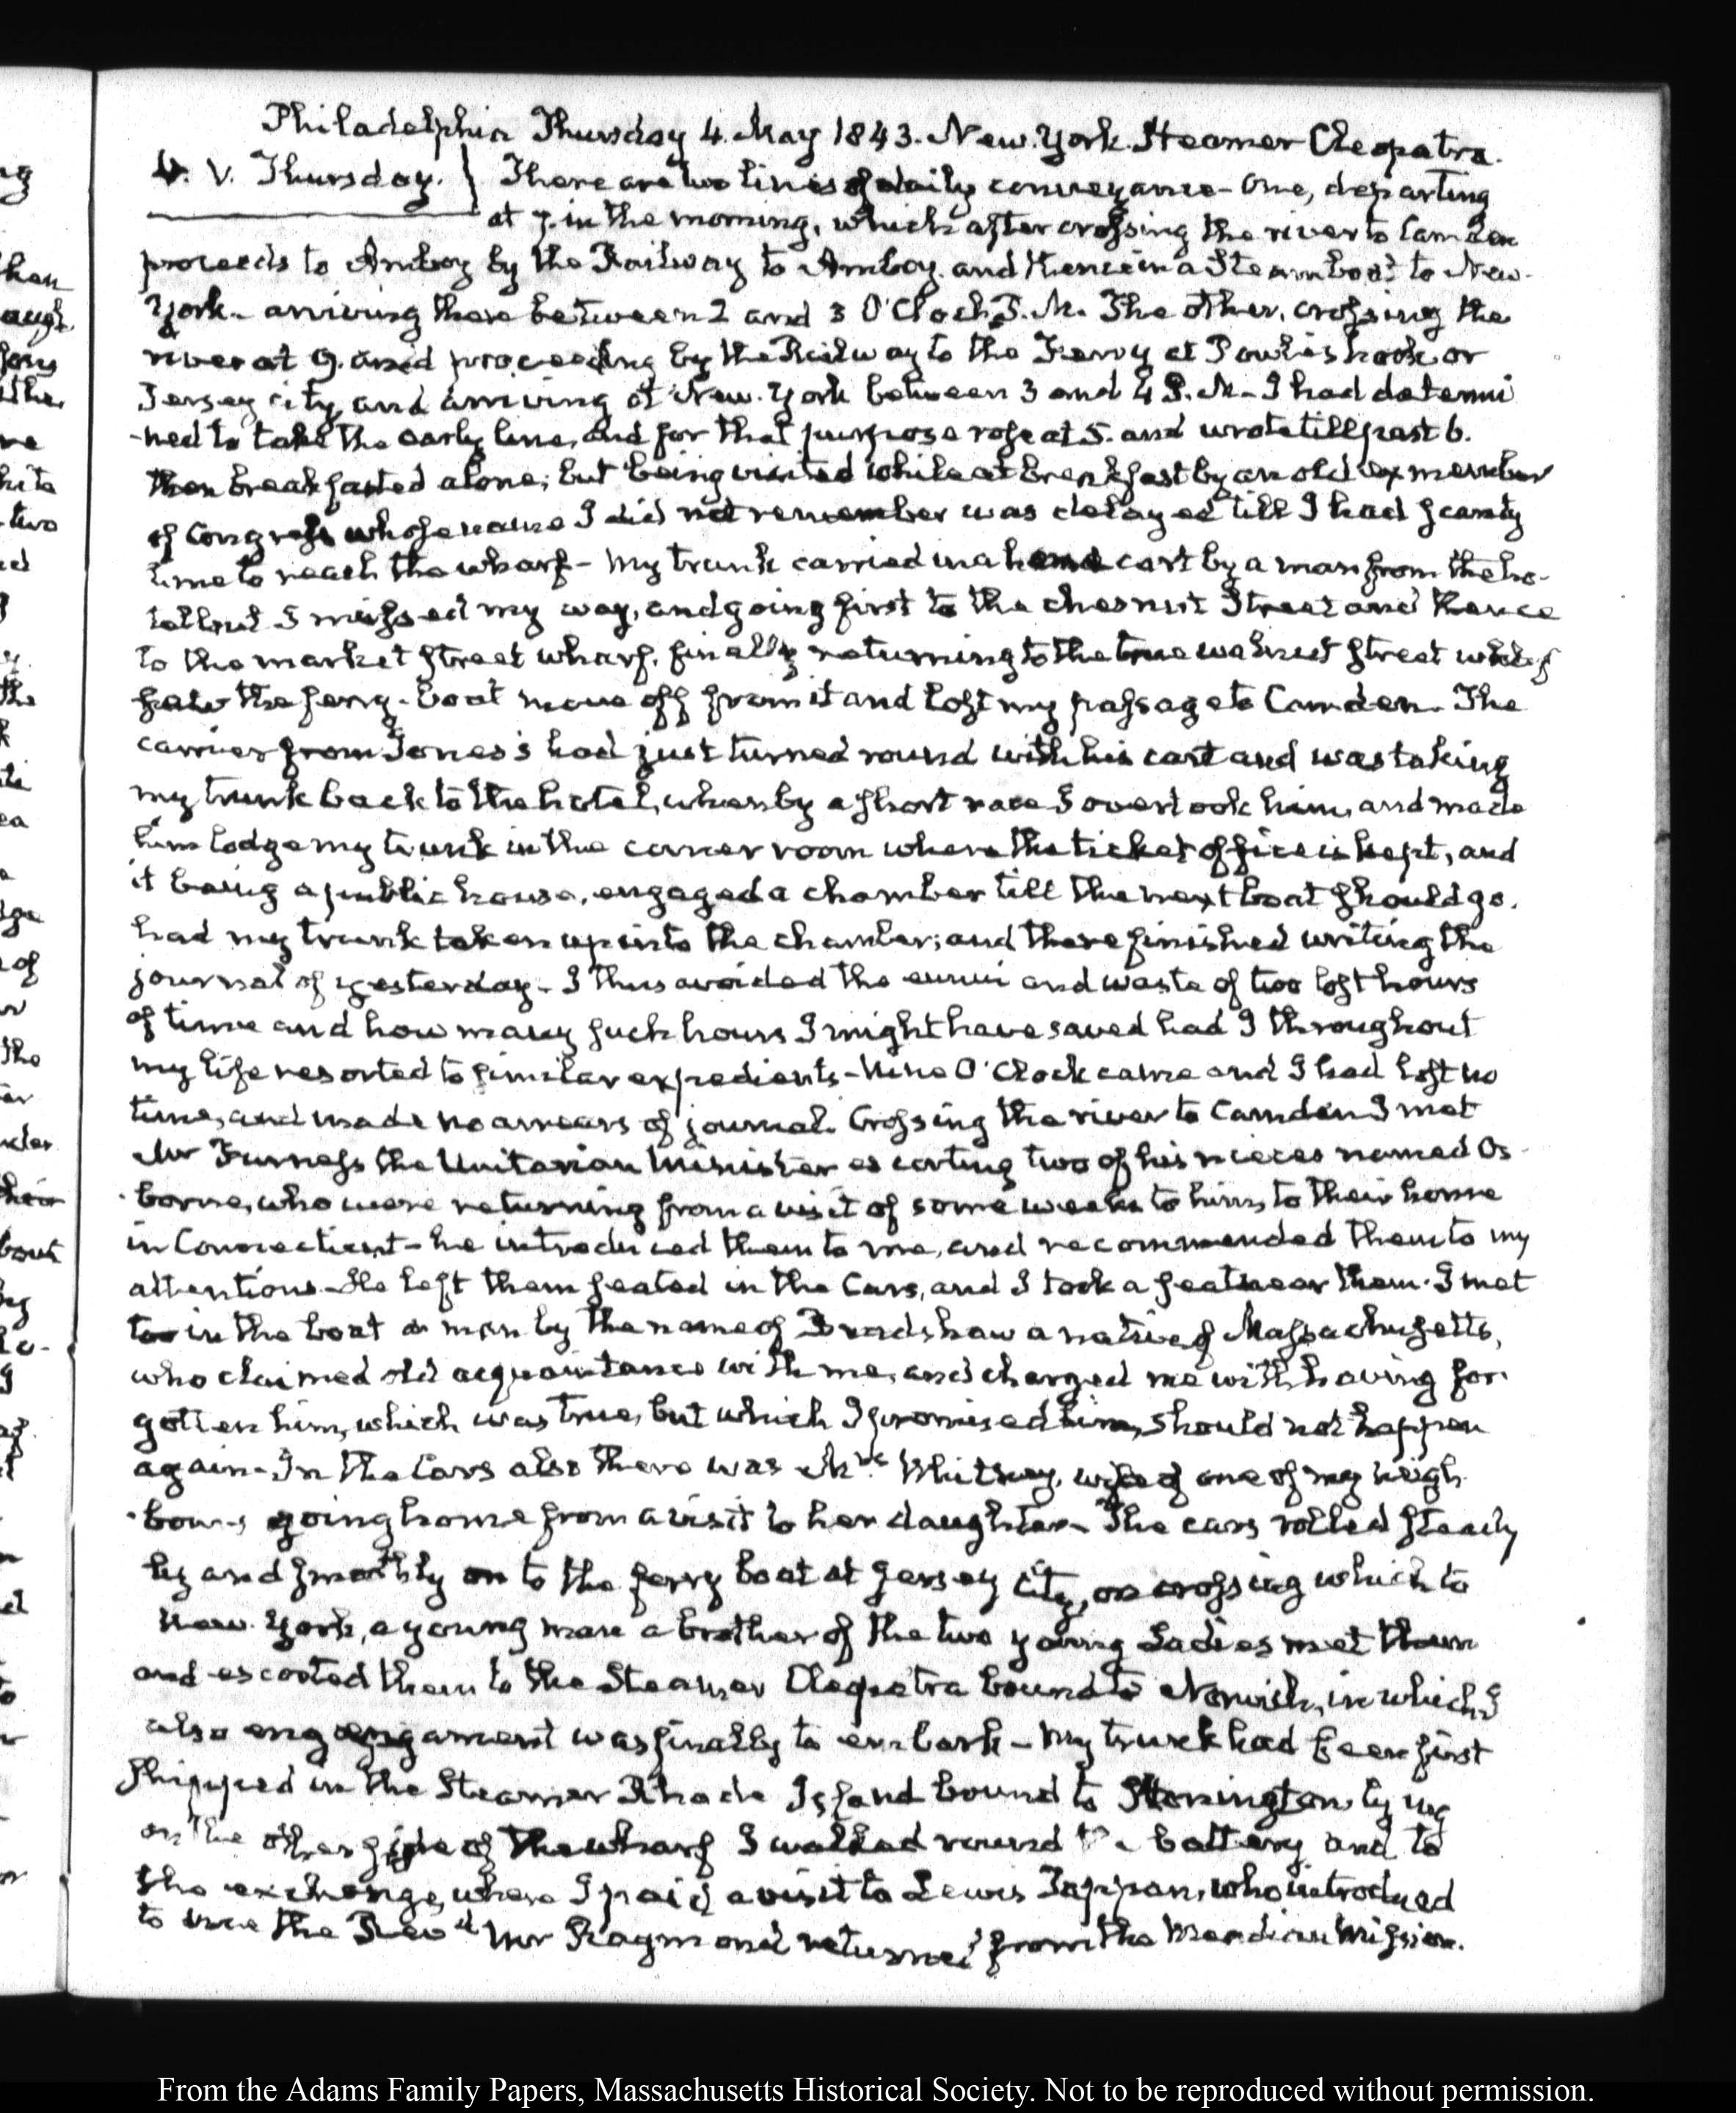 Philadelphia Thursday 4. May 1843. New-York. Steamer Cleopatra.
4. V. Thursday. } There are two lines of daily conveyance - One, departing
at 7. in the morning, which after crossing the river to Camden
proceeds to Amboy by the Railway to Amboy. and thence in a Steamboat to New-
York - arriving there between 2 and 3 O'Clock P.M. The other, crossing the
river at 9. and proceeding by the Railway to the Ferry at Powles hook or
Jersey city, and arriving at New-York between 3 and 4 P.M - I had determi
-ned to take the early line, and for that purpose rose at 5. and wrote till past 6.
then breakfasted alone; but being visited while at breakfast by an old ex member
of Congress whose name I did not remember was delayed till I had scanty
time to reach the wharf - My trunk carried in a hand cart by a man from the ho-
tel but I missed my way, and going first to the chesnut Street and thence
to the market street wharf, finally returning to the true walnut street wharf
saw the ferry-boat move off from it and lost my passage to Camden. The
carrier from Jones's had just turned round with his cart and was taking
my trunk back to the hotel, when by a short race I overtook him, and made
him lodge my trunk in the corner room where the ticket office is kept, and
it being a public house, engaged a chamber till the next boat should go.
had my trunk taken up into the chamber; and there finished writing the
journal of yesterday - I thus avoided the ennui and waste of two lost hours
of time and how many such hours I might have saved had I throughout
my life resorted to similar expedients - Nine O'Clock came and I had lost no
time, and made no arrears of journal. Crossing the river to Camden I met
Mr Furness the Unitarian Minister escorting two of his nieces named Os-
-borne, who were returning from a visit of some weeks to him, to their home
in Connecticut - he introduced them to me, and recommended them to my
attentions - He left them seated in the Cars, and I took a seat near them. I met
too in the boat a man by the name of Bradshaw a native of Massachusetts,
who claimed old acquaintance with me, and charged me with having for-
gotten him, which was true, but which I promised him, should not happen
again - In the Cars also there was Mrs. Whitney, wife of one of my neigh-
-bours going home from a visit to her daughter - The cars rolled steadi
ly and smoothly on to the ferry boat at Jersey City, on crossing which to
New-York, a young man a brother of the two young Ladies met them
and escorted them to the Steamer Cleopatra bound to Norwich, in which I
also was finally to embark - My trunk had been first
shipped in the Steamer Rhode Island bound to Stonington lying
on the other side of the wharf I walked round the battery and to
the exchange, where I paid a visit to Lewis Tappan, who introduced
to me the Revd. Mr Raymond returned from the Mendian Mission.
From the Adams Family Papers, Massachusetts Historical Society. Not to be reproduced without permission.